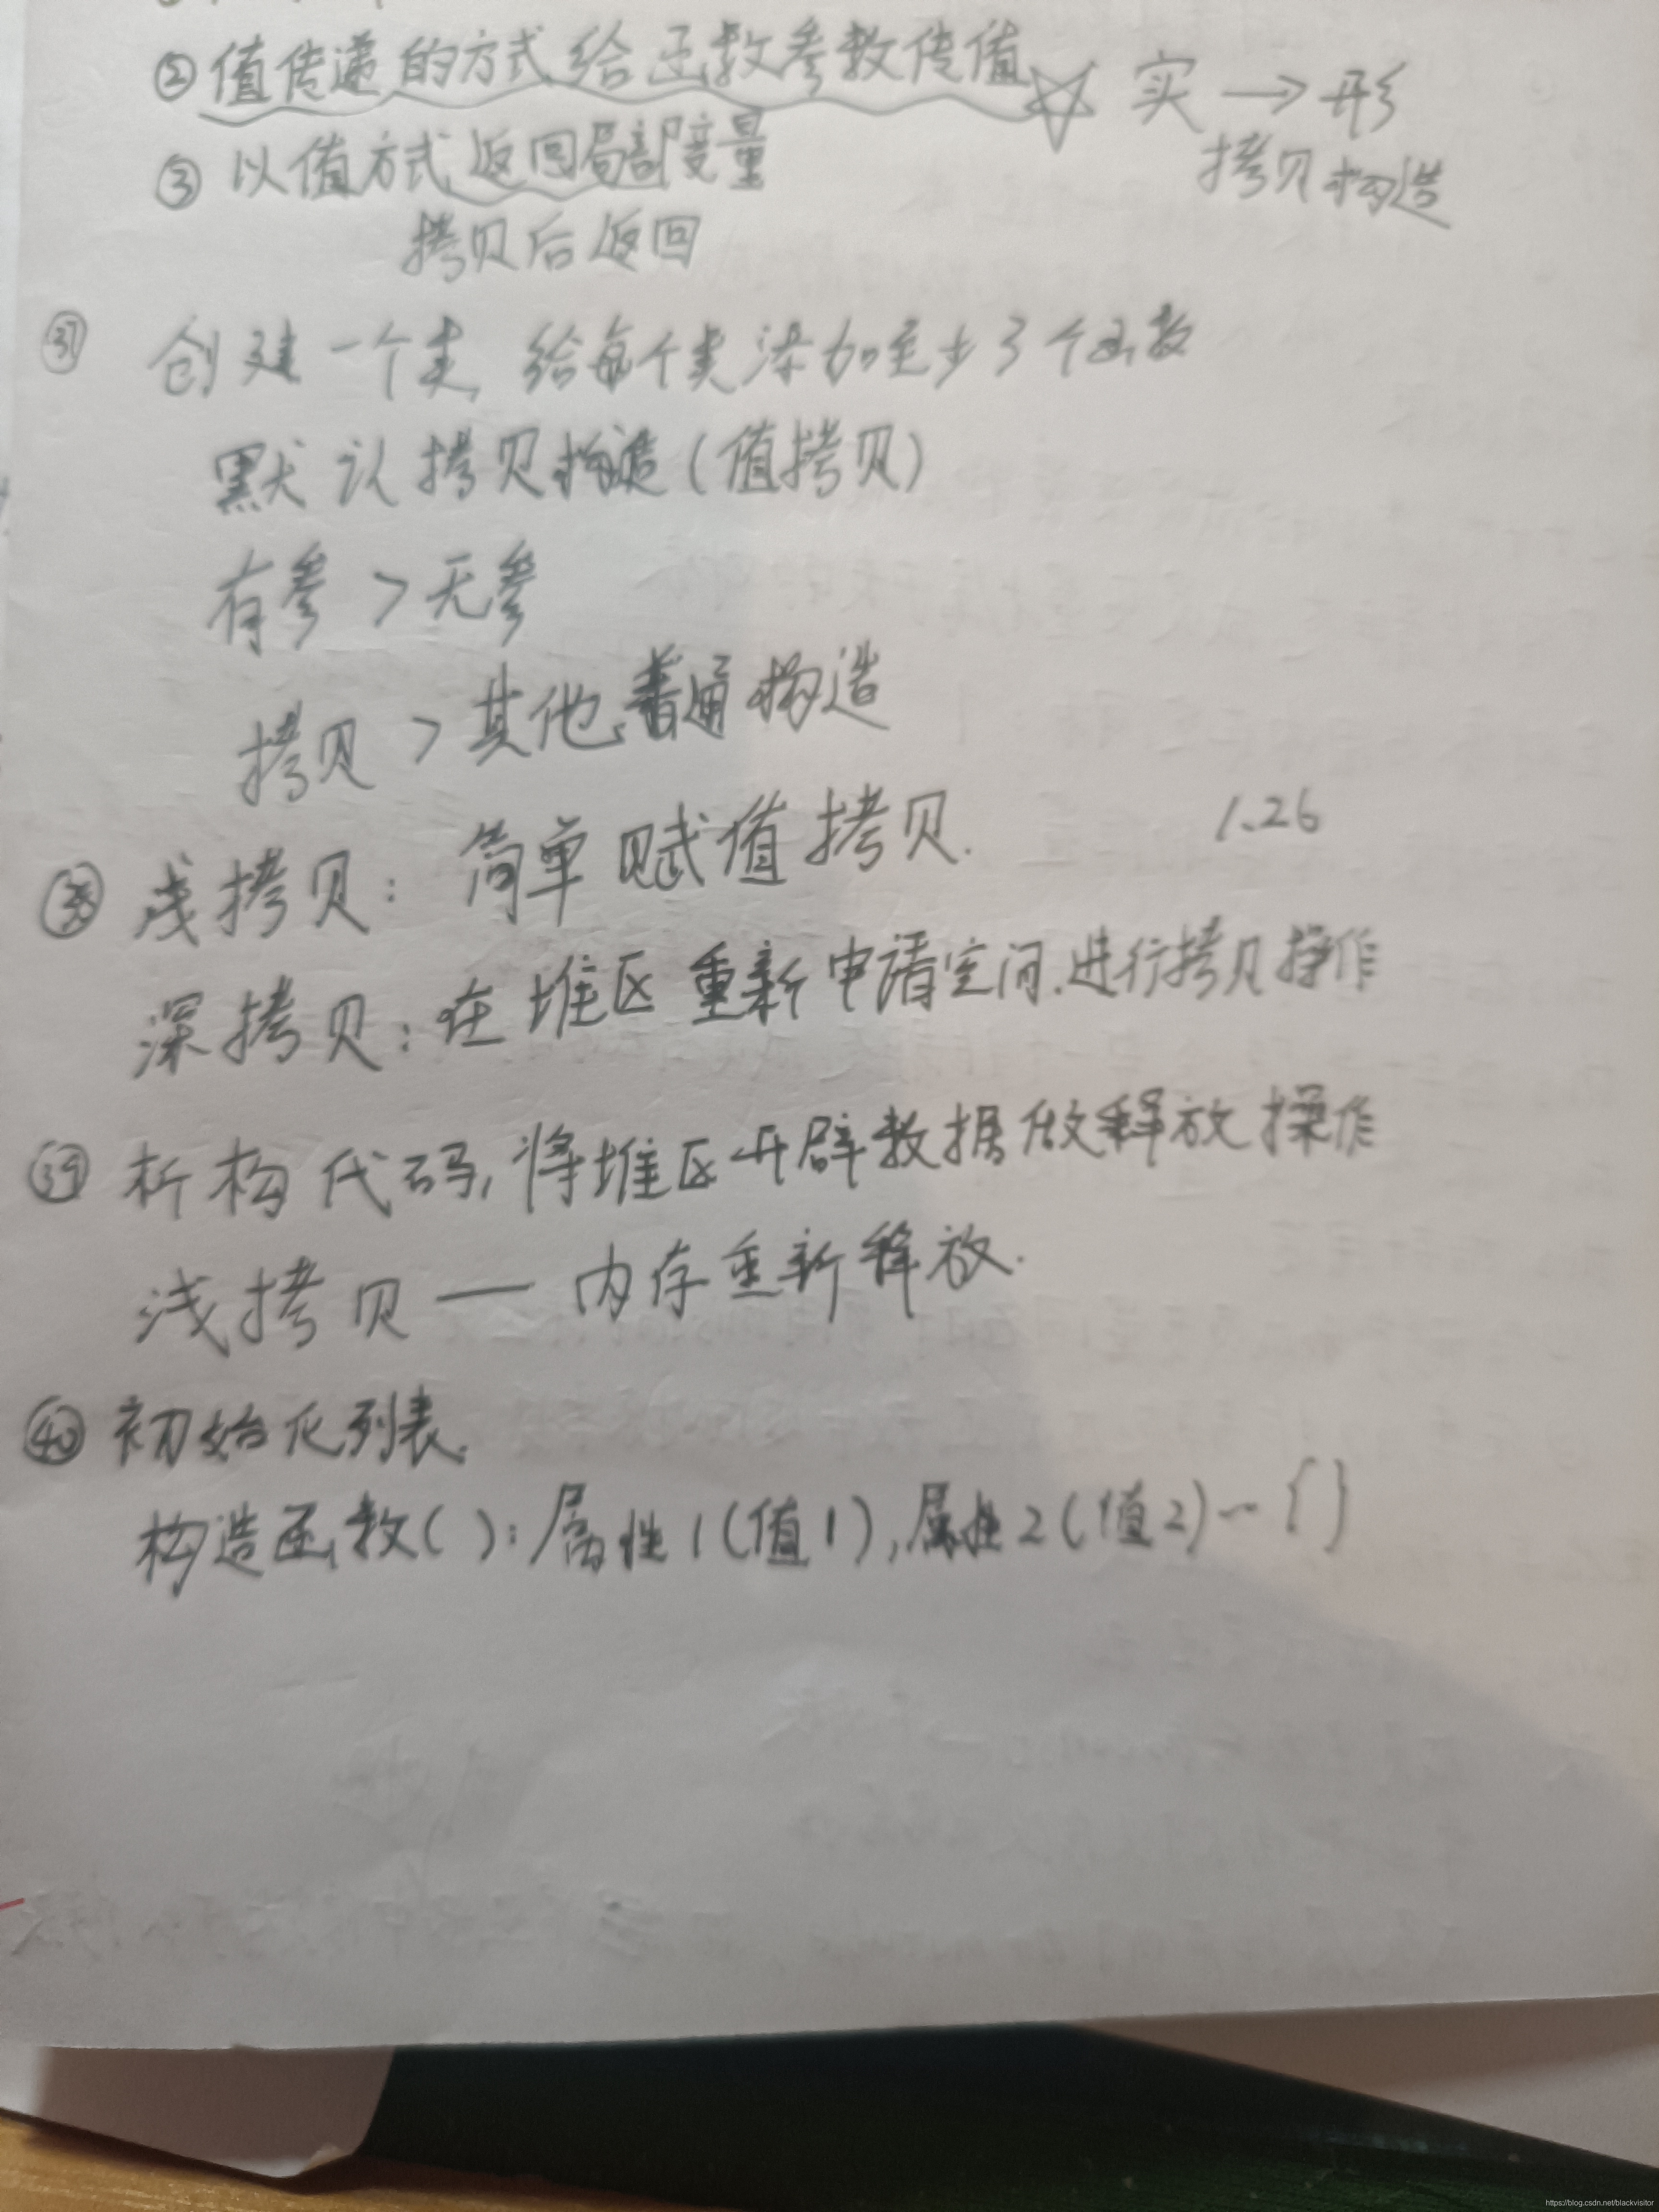 ② 值传递的方式给函数参数传值☆ 实 → 形
拷贝构造
③ 以值方式返回局部变量
拷贝后返回
㊲ 创建一个类, 给每个类添加至少3个函数
默认拷贝构造(值拷贝)
有参 > 无参
拷贝 > 其他普通构造
1.26
㊳ 浅拷贝: 简单赋值拷贝.
深拷贝: 在堆区重新申请空间.进行拷贝操作
㊴ 析构代码, 将堆区开辟数据做释放操作
浅拷贝 — 内存重新释放.
㊵ 初始化列表.
构造函数( ): 属性1(值1),属性2(值2)~{}
https://blog.csdn.net/blackvisitor